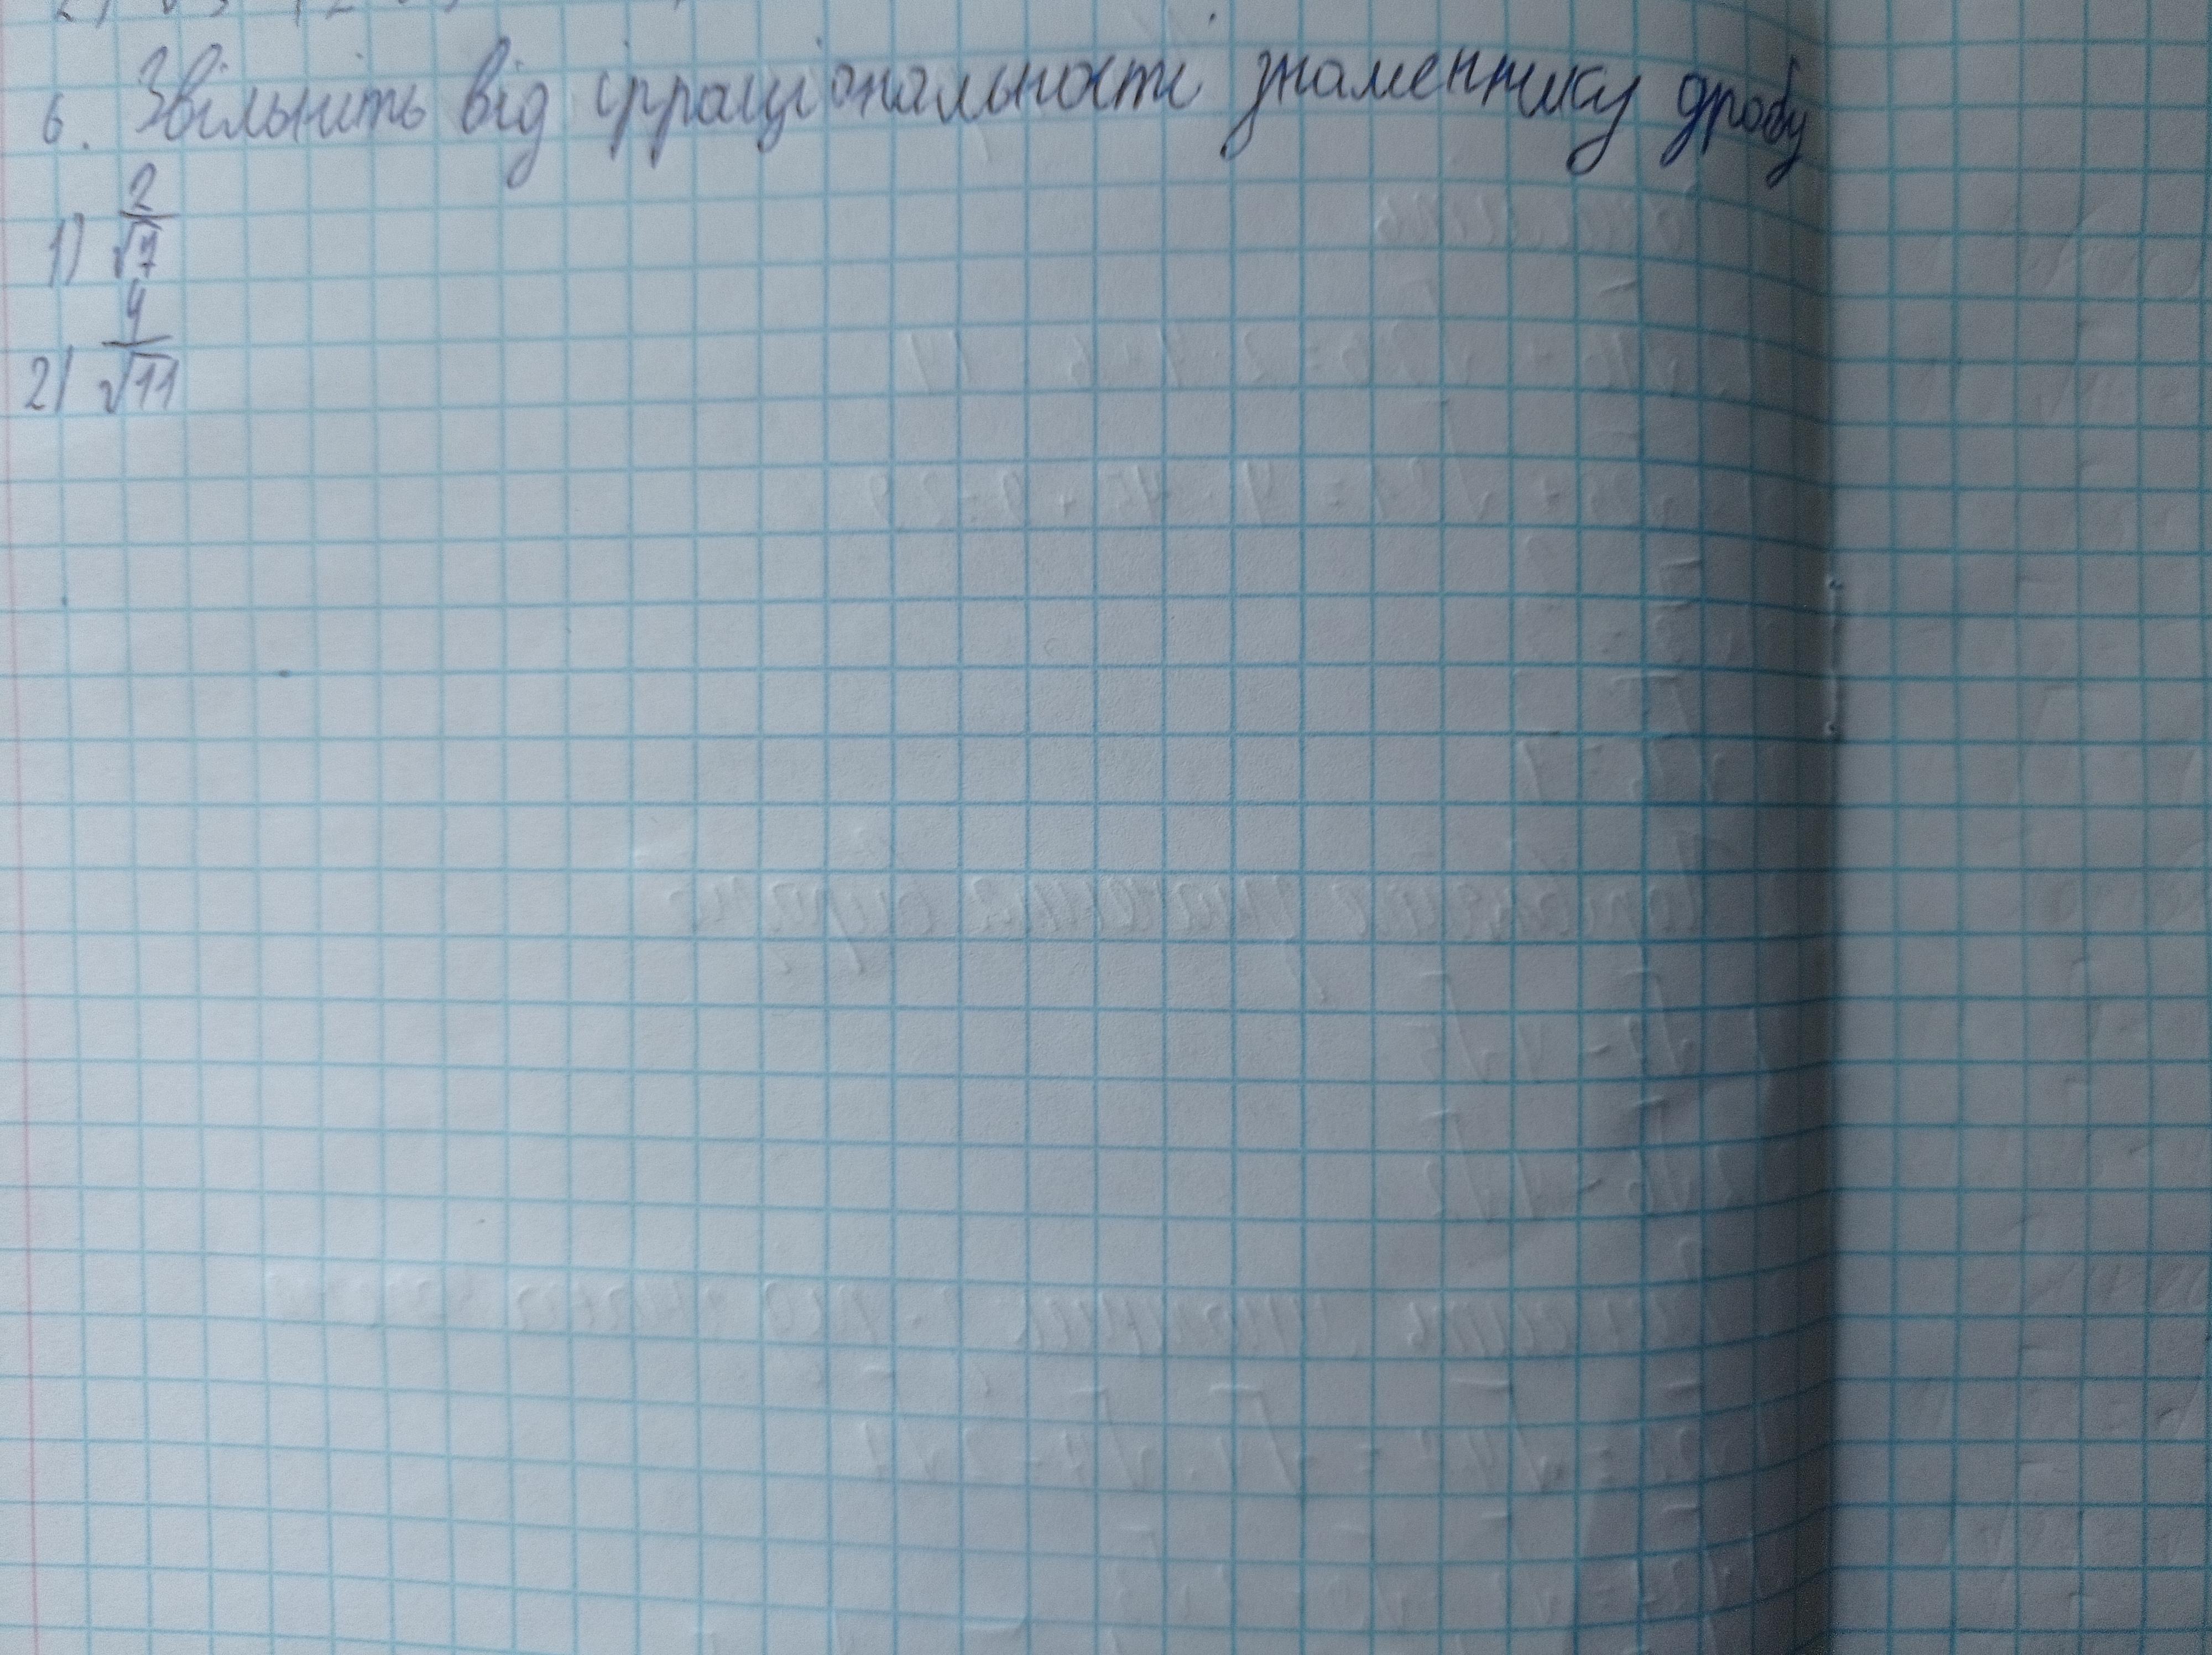 6. Звільніть від ірраціональності знаменнику дробу
1) 2/√7
2) 4/√11